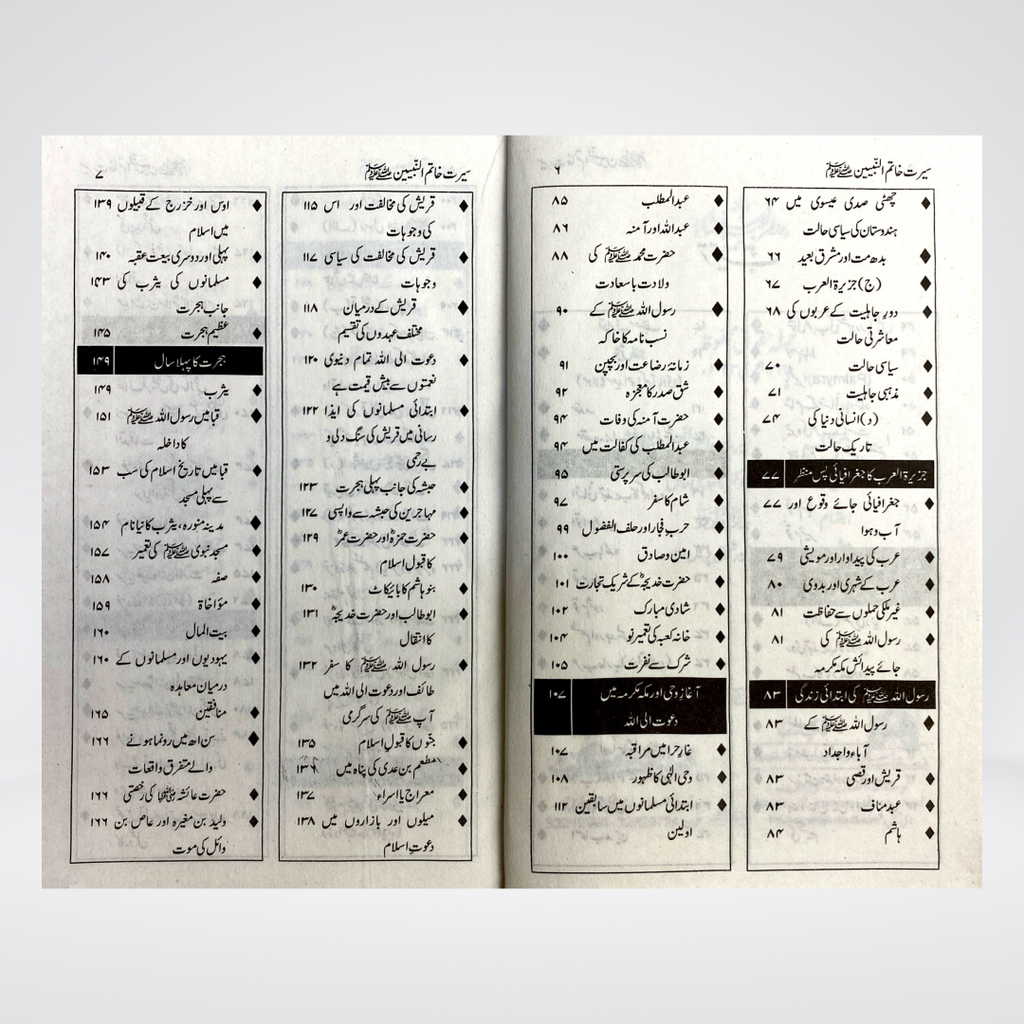 سیرت خاتم النّبیین ﷺ ۶
چھٹی صدی عیسوی میں ۶۴
ہندوستان کی سیاسی حالت
بدھ مت اور مشرق بعید ۶۶
(ج) جزیرۃ العرب ۶۷
دورِ جاہلیت کے عربوں کی ۶۸
معاشرتی حالت
سیاسی حالت ۷۰
مذہبی جاہلیت ۷۱
(د) انسانی دنیا کی ۷۴
تاریک حالت
جزیرۃ العرب کا جغرافیائی پس منظر ۷۷
جغرافیائی جائے وقوع اور ۷۷
آب و ہوا
عرب کی پیداوار اور مویشی ۷۹
عرب کے شہری اور بدوی ۸۰
غیر ملکی حملوں سے حفاظت ۸۱
رسول اللہ ﷺ کی ۸۱
جائے پیدائش مکہ مکرمہ
رسول اللہ ﷺ کی ابتدائی زندگی ۸۳
رسول اللہ ﷺ کے ۸۳
آباء و اجداد
قریش اور قصی ۸۳
عبد مناف ۸۳
ہاشم ۸۴
عبدالمطلب ۸۵
عبداللہ اور آمنہ ۸۶
حضرت محمد ﷺ کی ۸۸
ولادت باسعادت
رسول اللہ ﷺ کے ۹۰
نسب نامہ کا خاکہ
زمانۂ رضاعت اور بچپن ۹۱
شق صدر کا معجزہ ۹۲
حضرت آمنہ کی وفات ۹۴
عبدالمطلب کی کفالت میں ۹۴
ابوطالب کی سرپرستی ۹۵
شام کا سفر ۹۷
حرب فجار اور حلف الفضول ۹۹
امین و صادق ۱۰۰
حضرت خدیجہؓ کے شریک تجارت ۱۰۱
شادی مبارک ۱۰۲
خانہ کعبہ کی تعمیر نو ۱۰۴
شرک سے نفرت ۱۰۵
آغاز وحی اور مکہ مکرمہ میں ۱۰۷
دعوت الی اللہ
غارِ حرا میں مراقبہ ۱۰۷
وحی الٰہی کا ظہور ۱۰۸
ابتدائی مسلمانوں میں سابقین ۱۱۲
اولین
سیرت خاتم النّبیین ﷺ ۷
قریش کی مخالفت اور اس ۱۱۵
کی وجوہات
قریش کی مخالفت کی سیاسی ۱۱۷
وجوہات
قریش کے درمیان ۱۱۸
مختلف عہدوں کی تقسیم
دعوت الی اللہ تمام دنیوی ۱۲۰
نعمتوں سے بیش قیمت ہے
ابتدائی مسلمانوں کی ایذا ۱۲۲
رسانی میں قریش کی سنگ دلی و
بے رحمی
حبشہ کی جانب پہلی ہجرت ۱۲۳
مہاجرین کی حبشہ سے واپسی ۱۲۷
حضرت حمزہؓ اور حضرت عمرؓ ۱۲۹
کا قبول اسلام
بنو ہاشم کا بائیکاٹ ۱۳۰
ابوطالب اور حضرت خدیجہؓ ۱۳۱
کا انتقال
رسول اللہ ﷺ کا سفر ۱۳۲
طائف اور دعوت الی اللہ میں
آپ ﷺ کی سرگرمی
جنّوں کا قبولِ اسلام ۱۳۵
مطعم بن عدی کی پناہ میں ۱۳۶
معراج یا اسراء ۱۳۷
میلوں اور بازاروں میں ۱۳۸
دعوتِ اسلام
اوس اور خزرج کے قبیلوں ۱۳۹
میں اسلام
پہلی اور دوسری بیعت عقبہ ۱۴۰
مسلمانوں کی یثرب کی ۱۴۳
جانب ہجرت
عظیم ہجرت ۱۴۵
ہجرت کا پہلا سال ۱۴۹
یثرب ۱۴۹
قبا میں رسول اللہ ﷺ ۱۵۱
کا داخلہ
قبا میں تاریخ اسلام کی سب ۱۵۳
سے پہلی مسجد
مدینہ منورہ، یثرب کا نیا نام ۱۵۴
مسجد نبوی ﷺ کی تعمیر ۱۵۷
صفہ ۱۵۸
مؤاخاۃ ۱۵۹
بیت المال ۱۶۰
یہودیوں اور مسلمانوں کے ۱۶۰
درمیان معاہدہ
منافقین ۱۶۵
سن اھ میں رونما ہونے ۱۶۶
والے متفرق واقعات
حضرت عائشہ ؓ کی رخصتی ۱۶۶
ولید بن مغیرہ اور عاص بن ۱۶۶
وائل کی موت